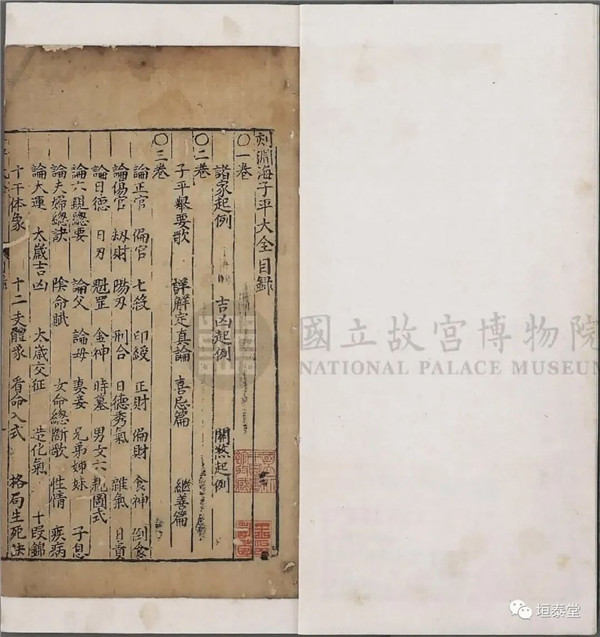 刻淵海子平大全目録
〇一卷
諸家起例 吉凶起例 關煞起例
〇二卷
子平舉要歌 詳解定真論 喜忌篇 繼善篇
〇三卷
論正官 偏官 七殺 印綬 正財 偏財 食神 倒食
論傷官 刼財 陽刃 刑合 日德秀氣 雜氣 日貴
論日德 日刃 魁罡 金神 時墓 男女六親圖式
論六親總要 論父 論母 妻妾 兄弟姊妹 子息
論夫婦總訣 陰命賦 女命總斷歌 性情 疾病
論大運 太歲吉凶 太歲交征 造化氣 十段錦
十干体象 十二支體象 看命入式 格局生死
國立故宮博物院
NATIONAL PALACE MUSEUM
垣泰堂